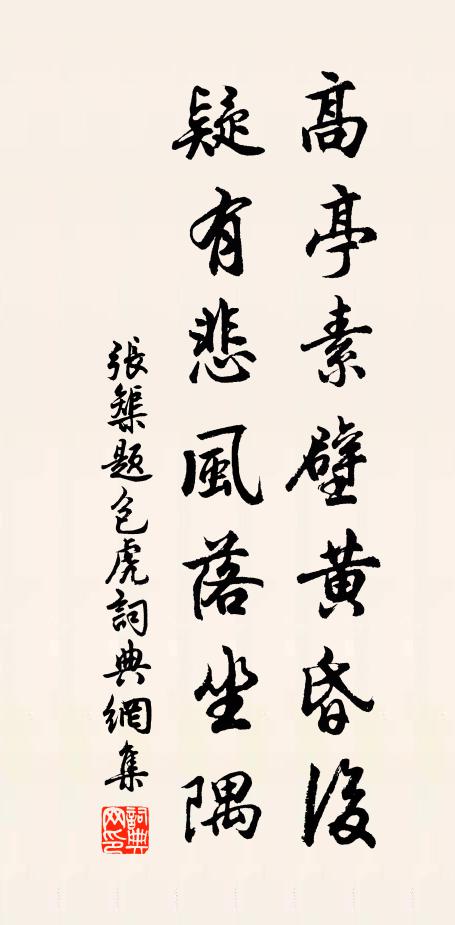 高亭素壁黄昏後
疑有悲風落坐隅
張榘題包虎詞典網集
詞典網印